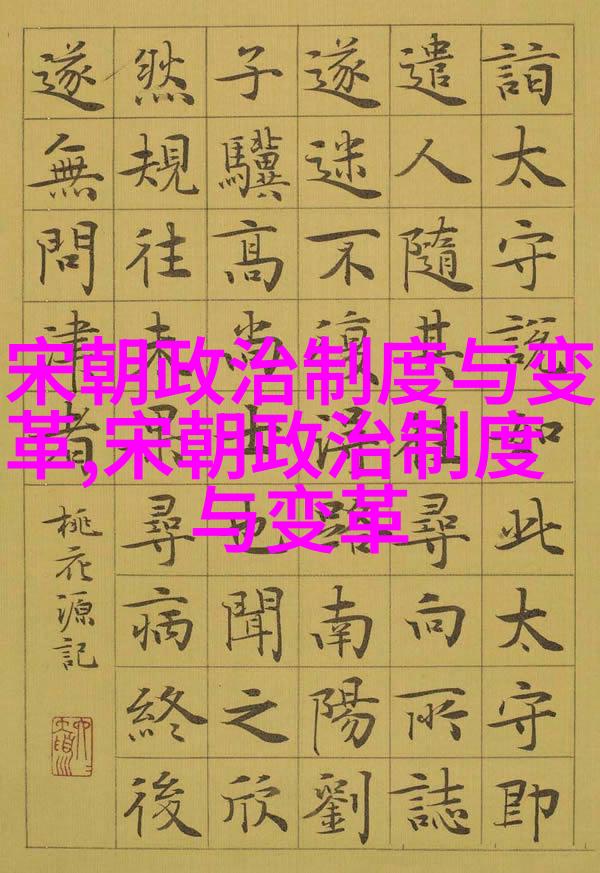 宋朝政治制度与变
革,宋朝政治制度
与变革
詣太守說如此太守即
遣人隨其往尋向所誌
遂迷不復得路南陽劉
子驥高尚士也聞之欣
然規往未果尋病終後
遂無問津者
桃花源記